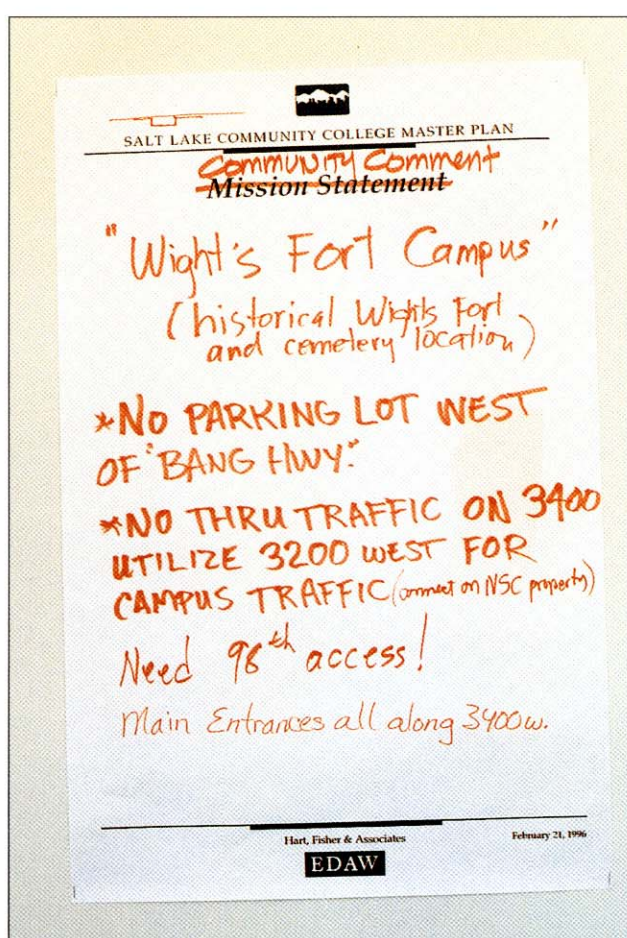 SALT LAKE COMMUNITY COLLEGE MASTER PLAN
Community Comment
Mission Statement
"Wight's Fort Campus"
(historical Wights Fort
and cemetery location)
*NO PARKING LOT WEST
OF "BANG HWY."
*NO THRU TRAFFIC ON 3400
UTILIZE 3200 WEST FOR
CAMPUS TRAFFIC (connect on NSC property)
Need 98th access!
Main Entrances all along 3400w.
Hart, Fisher & Associates
February 21, 1996
EDAW